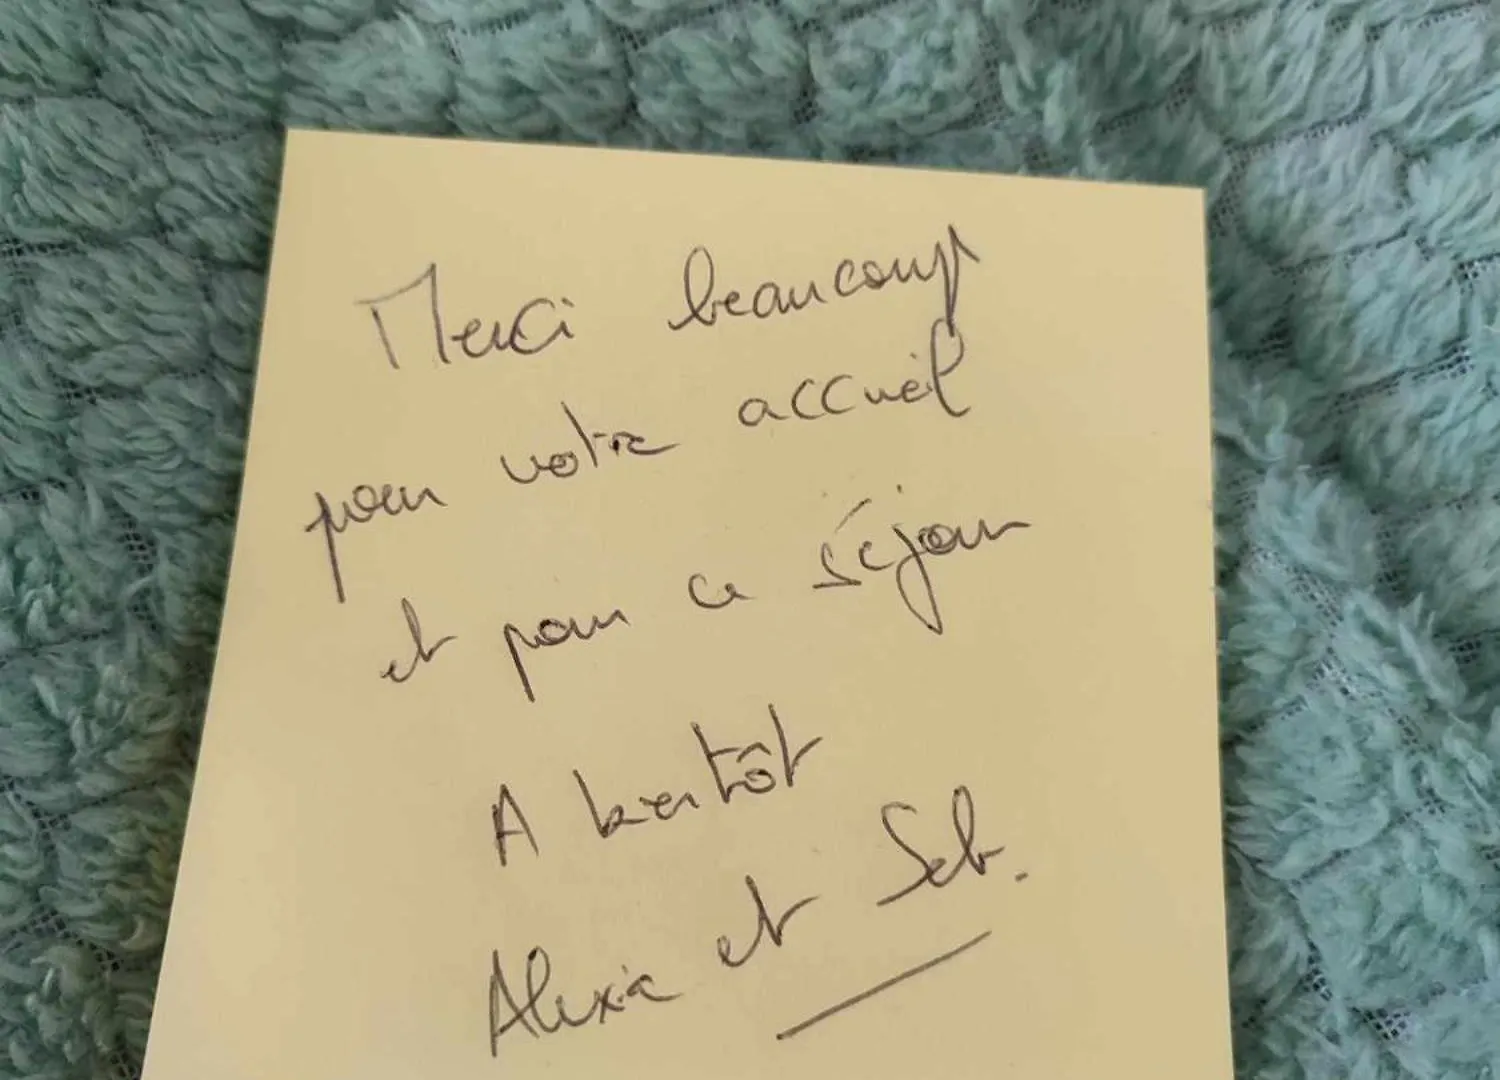 Merci beaucoup
pour votre accueil
et pour ce séjour
A bientôt
Alexia et Seb.